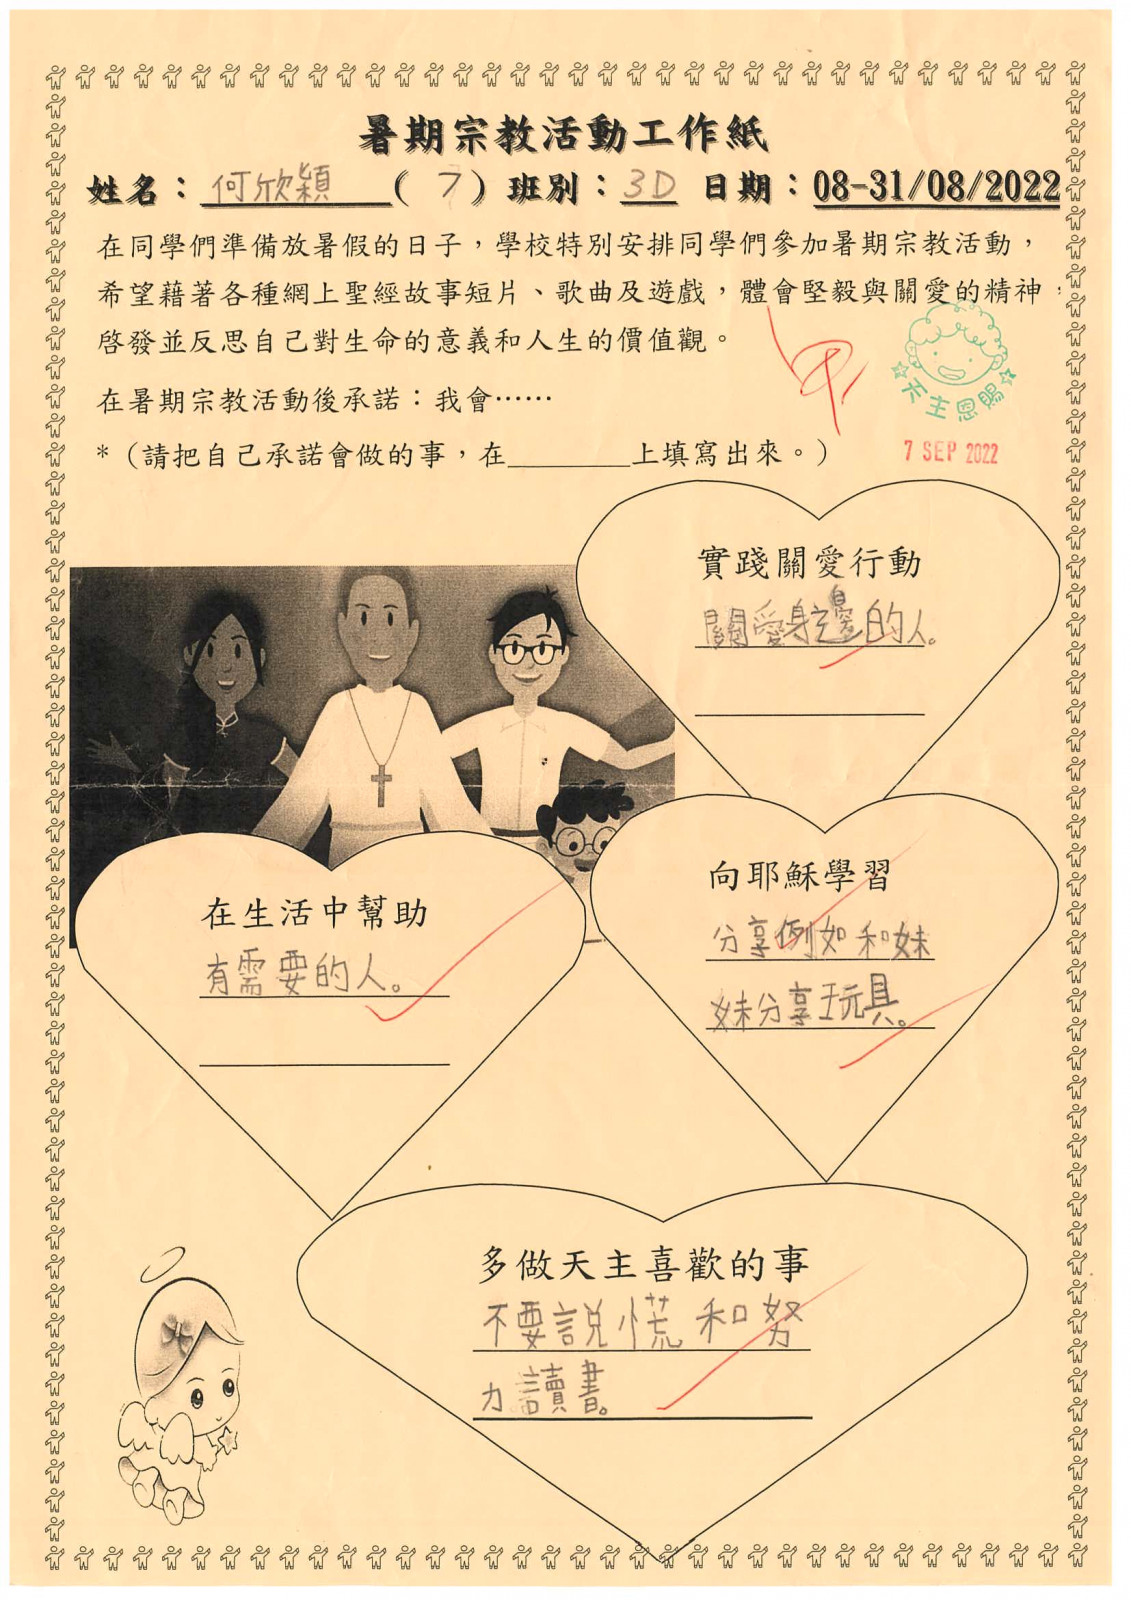 暑期宗教活動工作紙
姓名：何欣穎（7）班別：3D 日期：08-31/08/2022
在同學們準備放暑假的日子，學校特別安排同學們參加暑期宗教活動，
希望藉著各種網上聖經故事短片、歌曲及遊戲，體會堅毅與關愛的精神，
啓發並反思自己對生命的意義和人生的價值觀。
在暑期宗教活動後承諾：我會……
*（請把自己承諾會做的事，在________上填寫出來。）
甲
天主恩賜
7 SEP 2022
實踐關愛行動
關愛身邊的人。
向耶穌學習
分享例如和妹
妹分享玩具。
在生活中幫助
有需要的人。
多做天主喜歡的事
不要說慌和努
力讀書。